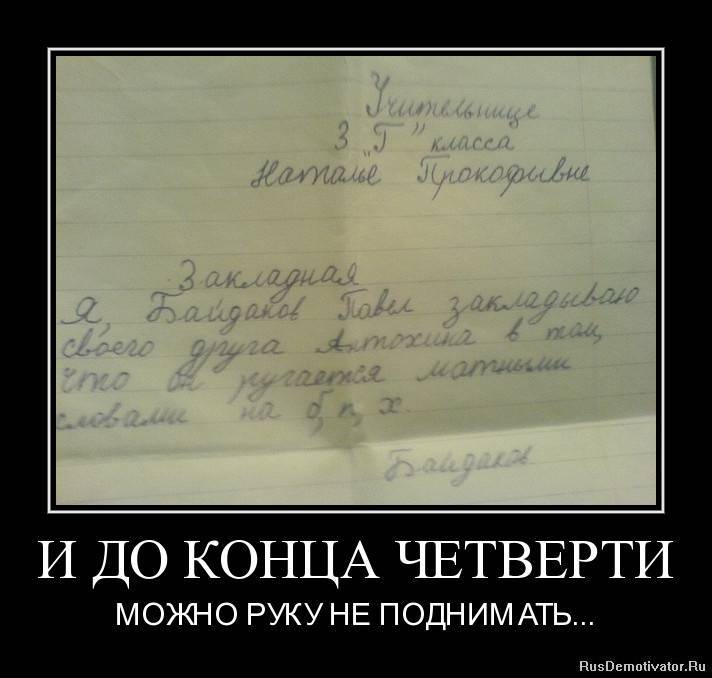 Учительнице
3 "Г" класса
Наталье Прокофивне
Закладная
Я, Байдаков Павел закладываю
своего друга Антохина в том,
что он ругается матными
словами на б, п, х.
Байдаков
И ДО КОНЦА ЧЕТВЕРТИ
МОЖНО РУКУ НЕ ПОДНИМАТЬ...
RusDemotivator.Ru